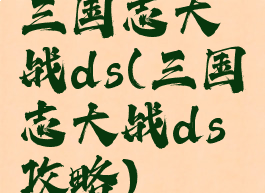 三国志大
战ds(三国
志大战ds
攻略)